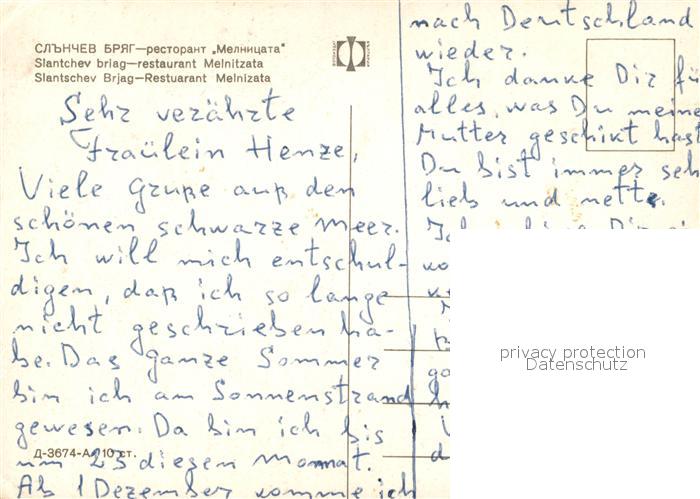 СЛЪНЧЕВ БРЯГ—ресторант „Мелницата"
Slantchev briag—restaurant Melnitzata
Slantschev Brjag—Restuarant Melnizata
Sehr verährte
Fraülein Henze,
Viele Gruße auß den
schönen schwarze Meer.
Ich will mich entschul-
digen, daß ich so lange
nicht geschrieben ha-
be. Das ganze Sommer
bin ich am Sonnenstrand
gewesen. Da bin ich bis
um 23 diesen Monnat.
Ab 1 Dezember komme ich
Д-3674-А 10 ст.
nach Deutschland
wieder.
Ich danke Dir fü
alles, was Du meine
Mutter geschikt hast
Du bist immer seh
lieb und nette.
privacy protection
Datenschutz